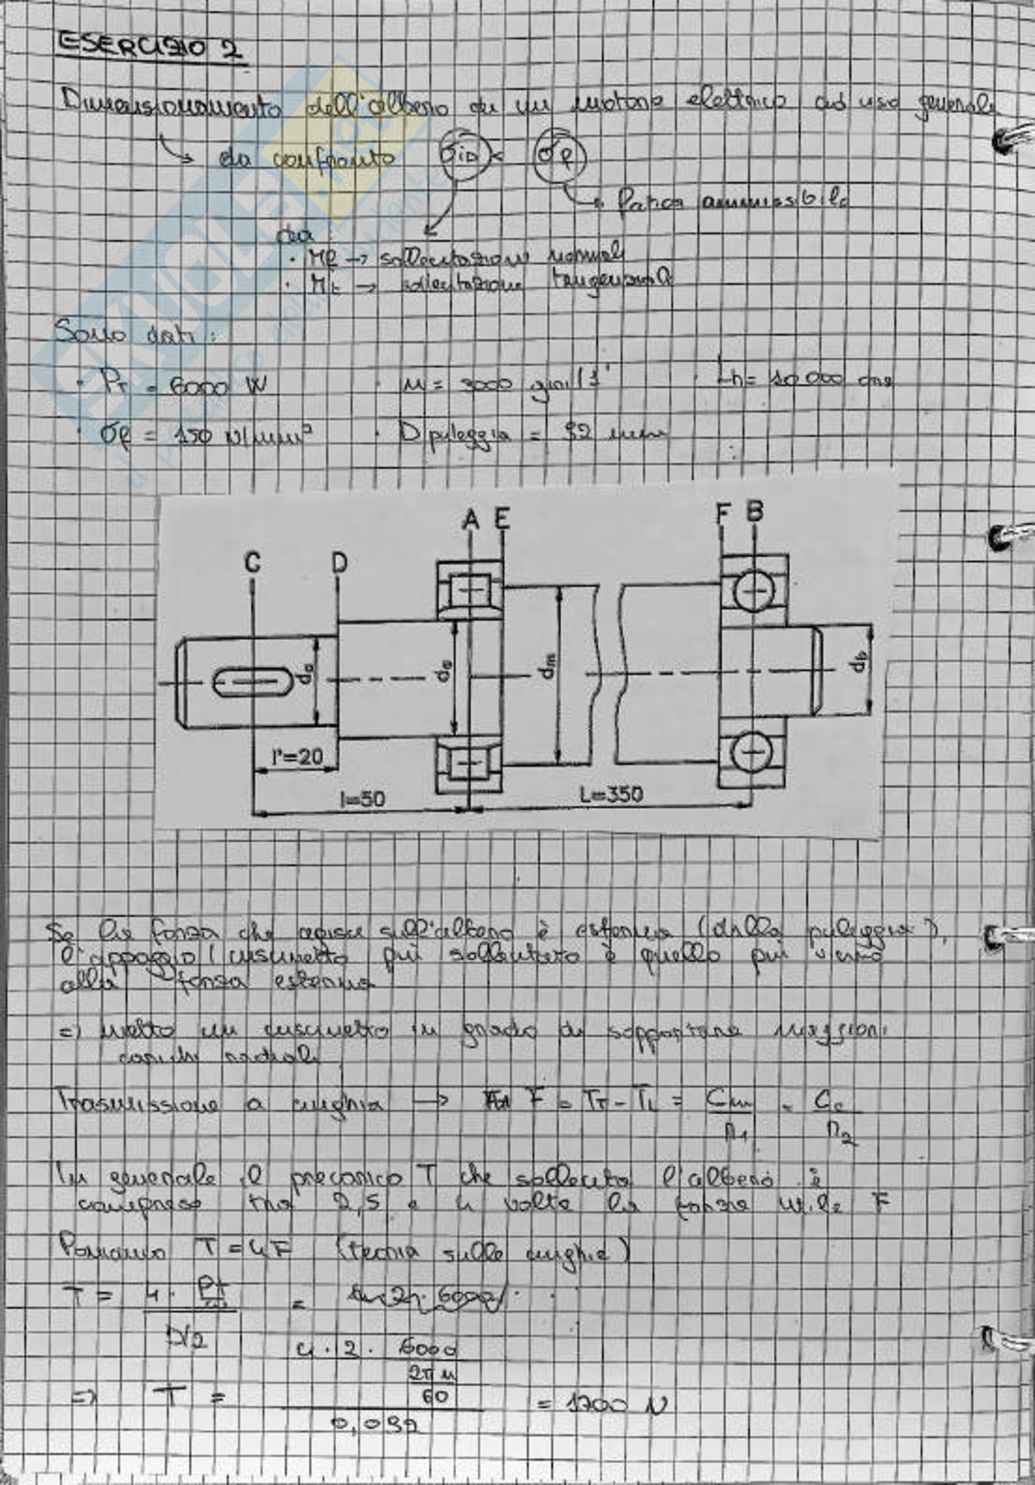 ESERCIZIO 2
Dimensionamento dell'albero di un motore elettrico ad uso generale
da confronto σid < σf
fatica ammissibile
da:
· Mf → sollecitazione normali
· Mt → sollecitazione tangenziale
Sono dati:
· Pt = 6000 W · n = 3000 giri/1' · Lh = 10 000 ore
· σf = 150 N/mm² · D puleggia = 92 mm
A E F B
C D
da da dm db
l'=20
l=50 L=350
Se la forza che agisce sull'albero è esterna (dalla puleggia),
l'appoggio/cuscinetto più sollecitato è quello più vicino
alla forza esterna
=> metto un cuscinetto in grado di sopportare maggiori
carichi radiali
Trasmissione a cinghia → F = TT - TL = Cm/r1 = Cc/r2
In generale il precarico T che sollecita l'albero è
compreso tra 2,5 e 4 volte la forza utile F
Poniamo T = 4F (teoria sulle cinghie)
T = 4 · Pt/ω / D/2 =
=> T = 4 · 2 · 6000 / 2πn/60 / 0,092 = 1700 N